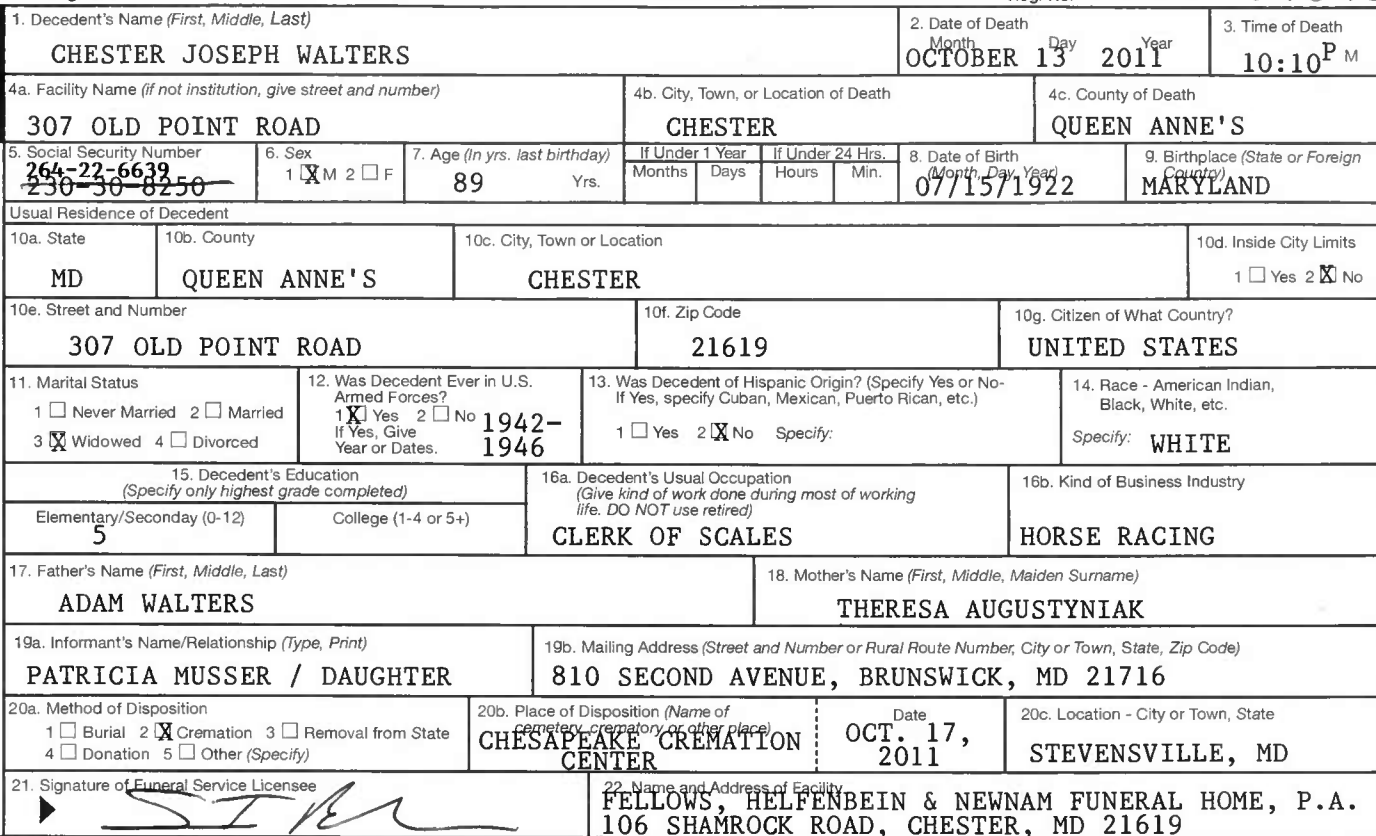 1. Decedent's Name (First, Middle, Last)
CHESTER JOSEPH WALTERS
2. Date of Death
Month Day Year
OCTOBER 13 2011
3. Time of Death
10:10P M
4a. Facility Name (if not institution, give street and number)
307 OLD POINT ROAD
4b. City, Town, or Location of Death
CHESTER
4c. County of Death
QUEEN ANNE'S
5. Social Security Number
264-22-6639
230-30-8250
6. Sex
1 X M 2 ☐ F
7. Age (In yrs. last birthday)
89 Yrs.
If Under 1 Year
Months Days
If Under 24 Hrs.
Hours Min.
8. Date of Birth
(Month, Day, Year)
07/15/1922
9. Birthplace (State or Foreign
Country)
MARYLAND
Usual Residence of Decedent
10a. State
MD
10b. County
QUEEN ANNE'S
10c. City, Town or Location
CHESTER
10d. Inside City Limits
1 ☐ Yes 2 X No
10e. Street and Number
307 OLD POINT ROAD
10f. Zip Code
21619
10g. Citizen of What Country?
UNITED STATES
11. Marital Status
1 ☐ Never Married 2 ☐ Married
3 X Widowed 4 ☐ Divorced
12. Was Decedent Ever in U.S.
Armed Forces?
1 X Yes 2 ☐ No
If Yes, Give
Year or Dates.
1942-
1946
13. Was Decedent of Hispanic Origin? (Specify Yes or No-
If Yes, specify Cuban, Mexican, Puerto Rican, etc.)
1 ☐ Yes 2 X No Specify:
14. Race - American Indian,
Black, White, etc.
Specify: WHITE
15. Decedent's Education
(Specify only highest grade completed)
Elementary/Seconday (0-12)
5
College (1-4 or 5+)
16a. Decedent's Usual Occupation
(Give kind of work done during most of working
life. DO NOT use retired)
CLERK OF SCALES
16b. Kind of Business Industry
HORSE RACING
17. Father's Name (First, Middle, Last)
ADAM WALTERS
18. Mother's Name (First, Middle, Maiden Surname)
THERESA AUGUSTYNIAK
19a. Informant's Name/Relationship (Type, Print)
PATRICIA MUSSER / DAUGHTER
19b. Mailing Address (Street and Number or Rural Route Number, City or Town, State, Zip Code)
810 SECOND AVENUE, BRUNSWICK, MD 21716
20a. Method of Disposition
1 ☐ Burial 2 X Cremation 3 ☐ Removal from State
4 ☐ Donation 5 ☐ Other (Specify)
20b. Place of Disposition (Name of
cemetery, crematory or other place)
CHESAPEAKE CREMATION
CENTER
Date
OCT. 17,
2011
20c. Location - City or Town, State
STEVENSVILLE, MD
21. Signature of Funeral Service Licensee
22. Name and Address of Facility
FELLOWS, HELFENBEIN & NEWNAM FUNERAL HOME, P.A.
106 SHAMROCK ROAD, CHESTER, MD 21619